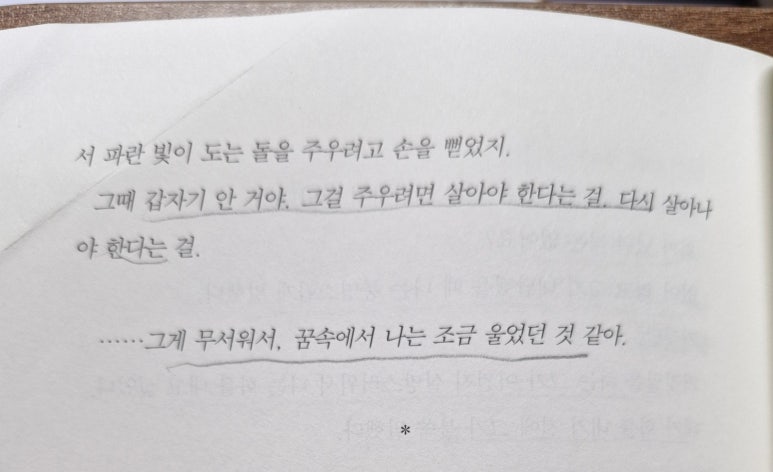 서 파란 빛이 도는 돌을 주우려고 손을 뻗었지.
그때 갑자기 안 거야. 그걸 주우려면 살아야 한다는 걸. 다시 살아나
야 한다는 걸.
……그게 무서워서, 꿈속에서 나는 조금 울었던 것 같아.
*